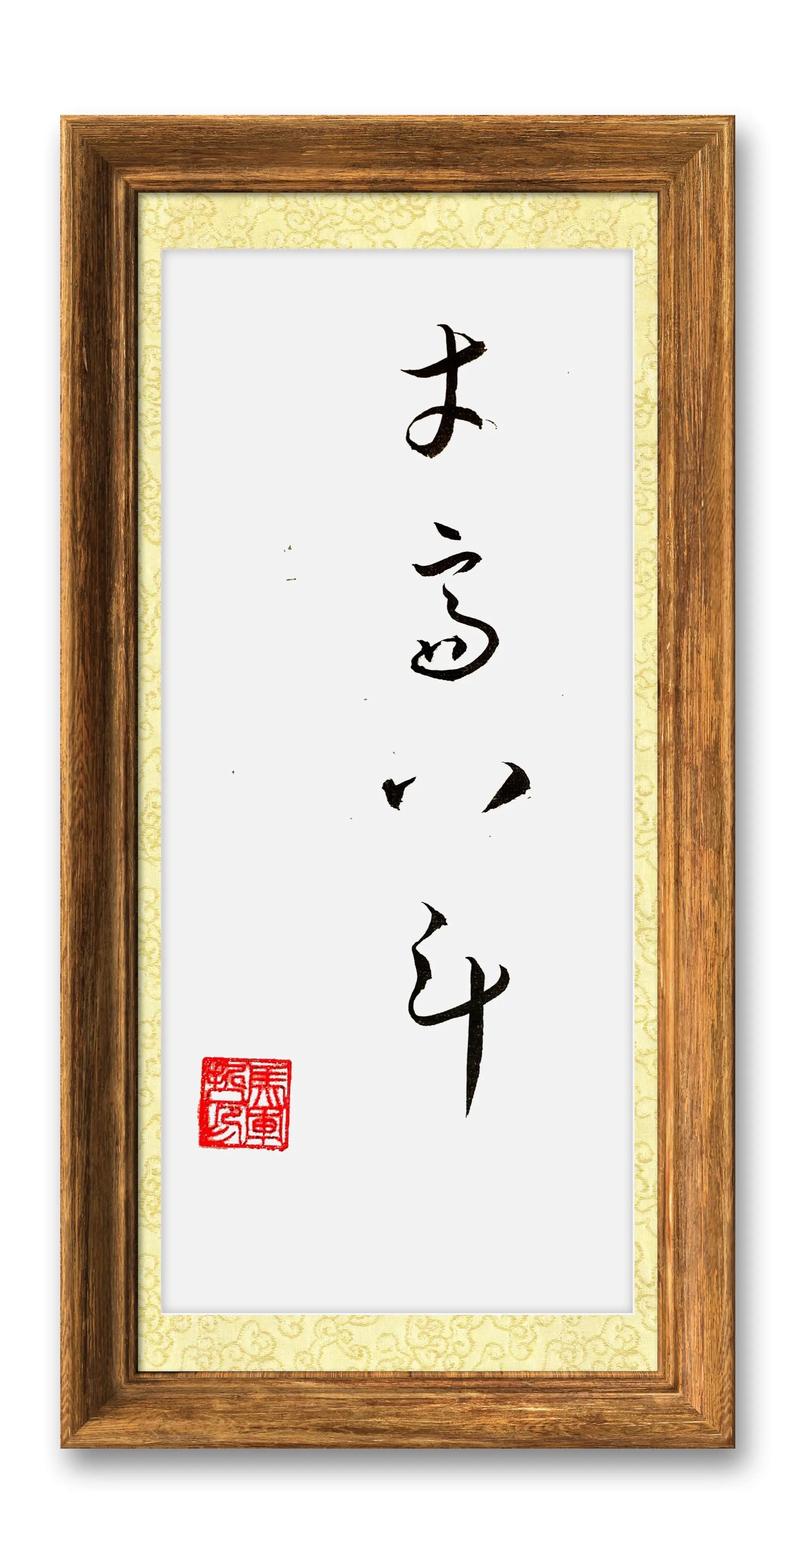 才高八斗